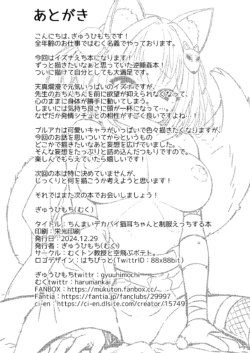 あとがき
こんにちは、ぎゅうひもちです！
全年齢のお仕事ではむく名義でやっております。
今回はイズナえち本になります！
ずっと描きたいなぁと思っていた逆睡姦本！
ついに描けて自分としても大満足です。
天真爛漫で元気いっぱいのイズナですが、
先生のおちんちんを前に欲望が抑えられなくなって、
心のままに身体が勝手に動いてしまう。
しまいには気持ち良さに頭が一杯になって…。
なぜだか発情シチュとの相性がすごく良いのです…。
ブルアカは可愛いキャラがいっぱいで色々描きたくなりますが、
今回のお話を思いついてからというもの
どこかで描きたいなあと妄想を広げていました。
そんな妄想をたっぷりと詰め込んだつもりですので、
楽しんでもらえていたら嬉しいです！
次回の本は特に決めていませんが、
じっくりと何を描こうか考えようと思います！
それではまた次の本でお会いしましょう！
ぎゅうひもち(むく)
タイトル：ちんまいデカパイ猫耳ちゃんと制服えっちする本
印刷：栄光印刷
発行日：2024.12.29
発行者：ぎゅうひもち(むく)
サークル：むくトン教授と空飛ぶポセット。
ロゴデザイン：はちびっと(TwitterID：88x88bit)
ぎゅうひもちtwittr：gyuuhimochi
むくtwittr：harumankai
FANBOX：https://mukuton.fanbox.cc/
Fantia：https://fantia.jp/fanclubs/29997
ci-en：https://ci-en.dlsite.com/creator/15749